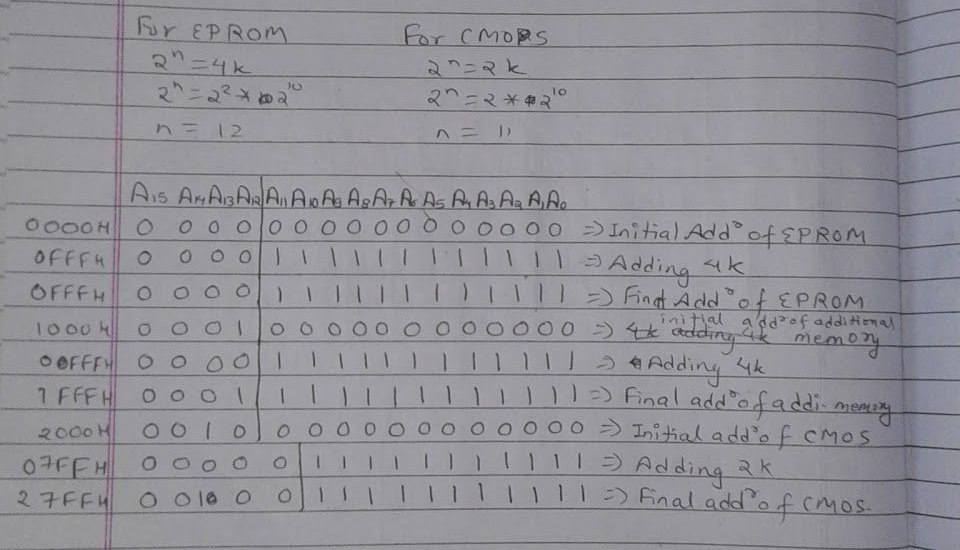 For EPROM For CMOS
2ⁿ = 4k 2ⁿ = 2k
2ⁿ = 2² * 2¹⁰ 2ⁿ = 2 * 2¹⁰
n = 12 n = 11
A15 A14 A13 A12 A11 A10 A9 A8 A7 A6 A5 A4 A3 A2 A1 A0
0000H 0 0 0 0 0 0 0 0 0 0 0 0 0 0 0 0 => Initial Addº of EPROM
0FFFH 0 0 0 0 1 1 1 1 1 1 1 1 1 1 1 1 => Adding 4k
0FFFH 0 0 0 0 1 1 1 1 1 1 1 1 1 1 1 1 => Final Addº of EPROM
1000H 0 0 0 1 0 0 0 0 0 0 0 0 0 0 0 0 => initial addº of additional memory
0FFFH 0 0 0 0 1 1 1 1 1 1 1 1 1 1 1 1 => Adding 4k
1FFFH 0 0 0 1 1 1 1 1 1 1 1 1 1 1 1 1 => Final addº of addi. memory
2000H 0 0 1 0 0 0 0 0 0 0 0 0 0 0 0 0 => Initial addº of CMOS
07FFH 0 0 0 0 0 1 1 1 1 1 1 1 1 1 1 1 => Adding 2k
27FFH 0 0 1 0 0 1 1 1 1 1 1 1 1 1 1 1 => Final addº of CMOS.